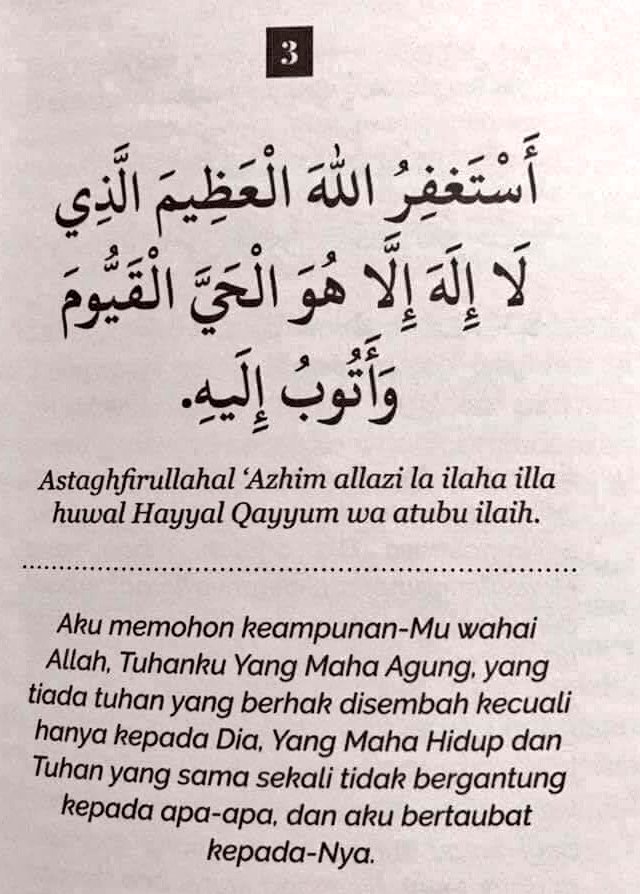 3
أَسْتَغْفِرُ اللهَ الْعَظِيمَ الَّذِي
لَا إِلَهَ إِلَّا هُوَ الْحَيَّ الْقَيُّومَ
وَأَتُوبُ إِلَيهِ.
Astaghfirullahal ‘Azhim allazi la ilaha illa
huwal Hayyal Qayyum wa atubu ilaih.
Aku memohon keampunan-Mu wahai
Allah, Tuhanku Yang Maha Agung, yang
tiada tuhan yang berhak disembah kecuali
hanya kepada Dia, Yang Maha Hidup dan
Tuhan yang sama sekali tidak bergantung
kepada apa-apa, dan aku bertaubat
kepada-Nya.